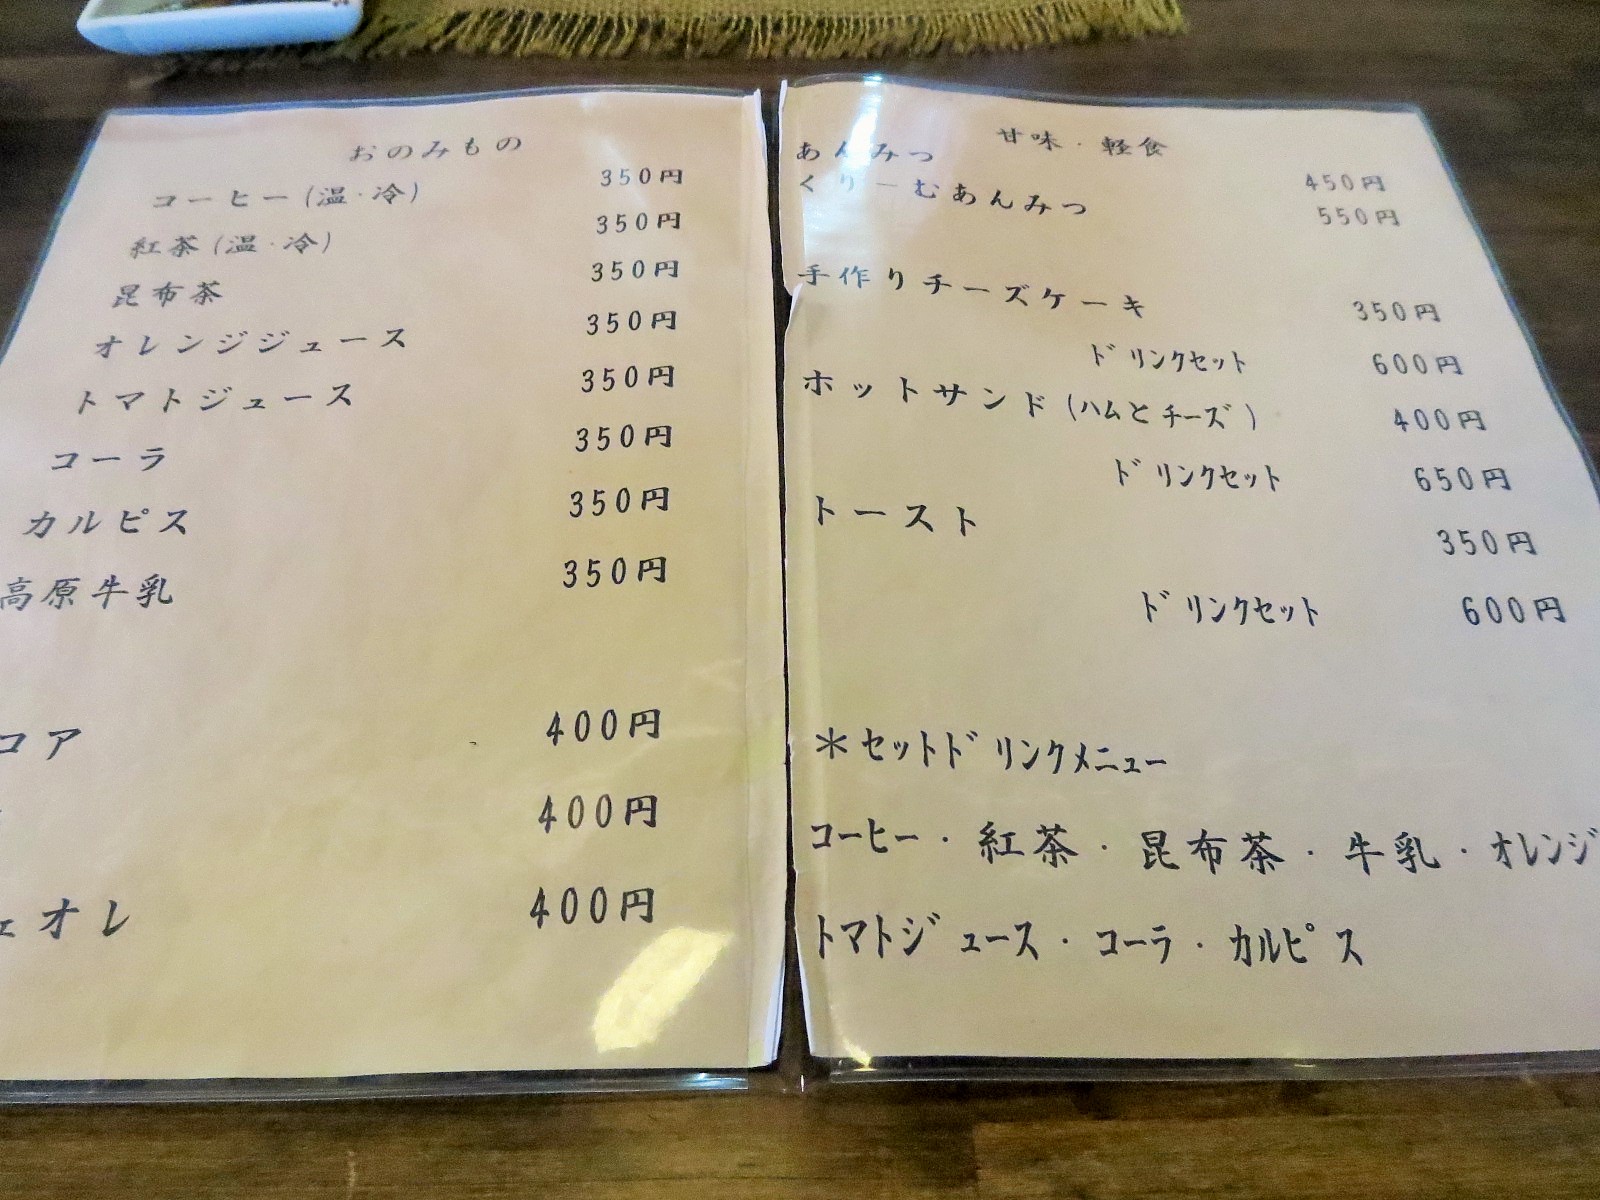 おのみもの
コーヒー(温・冷) 350円
紅茶(温・冷) 350円
昆布茶 350円
オレンジジュース 350円
トマトジュース 350円
コーラ 350円
カルピス 350円
高原牛乳 350円
コア 400円
400円
ェオレ 400円
甘味・軽食
あんみつ 450円
くりーむあんみつ 550円
手作りチーズケーキ 350円
ドリンクセット 600円
ホットサンド(ハムとチーズ) 400円
ドリンクセット 650円
トースト 350円
ドリンクセット 600円
*セットドリンクメニュー
コーヒー・紅茶・昆布茶・牛乳・オレンジ
トマトジュース・コーラ・カルピス